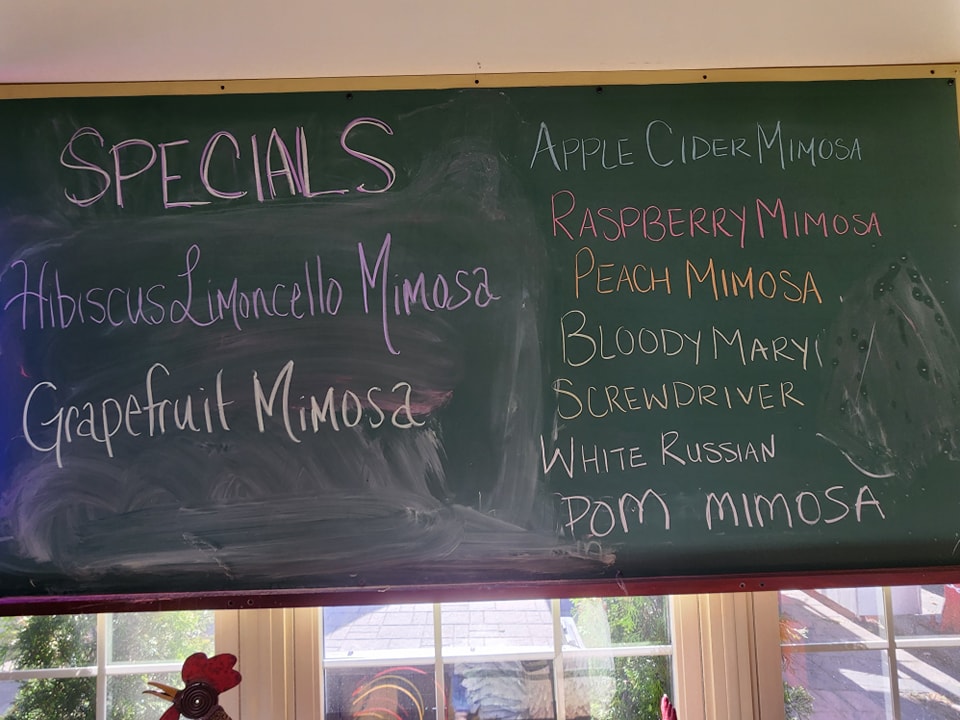 SPECIALS
Hibiscus Limoncello Mimosa
Grapefruit Mimosa
APPLE CIDER MIMOSA
RASPBERRY MIMOSA
PEACH MIMOSA
BLOODY MARY
SCREWDRIVER
WHITE RUSSIAN
POM MIMOSA